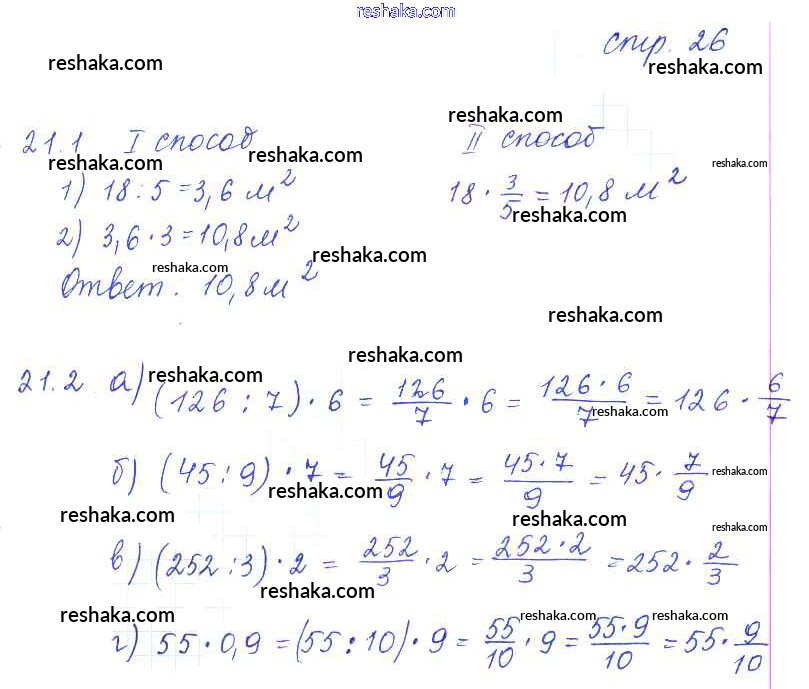 reshaka.com
стр. 26
reshaka.com
reshaka.com
reshaka.com
21.1 I способ II способ
reshaka.com
reshaka.com
reshaka.com
1) 18 : 5 = 3,6 м² 18 · 3/5 = 10,8 м²
reshaka.com
2) 3,6 · 3 = 10,8 м²
reshaka.com
reshaka.com
Ответ. 10,8 м²
reshaka.com
reshaka.com
21.2 а) (126 : 7) · 6 = 126/7 · 6 = 126 · 6/7 = 126 · 6/7
reshaka.com
reshaka.com
б) (45 : 9) · 7 = 45/9 · 7 = 45 · 7/9 = 45 · 7/9
reshaka.com
reshaka.com
reshaka.com
reshaka.com
reshaka.com
в) (252 : 3) · 2 = 252/3 · 2 = 252 · 2/3 = 252 · 2/3
reshaka.com
reshaka.com
reshaka.com
reshaka.com
г) 55 · 0,9 = (55 : 10) · 9 = 55/10 · 9 = 55 · 9/10 = 55 · 9/10